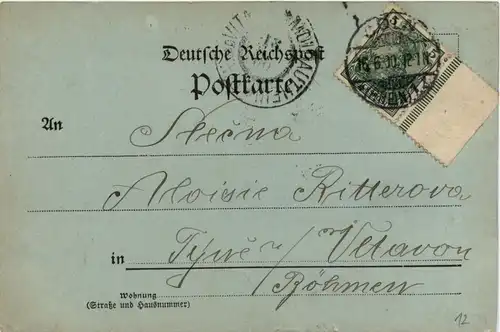 Deutsche Reichspost
Postkarte
An
Slečna
Aloisie Ritterova
in Týně n/ Vltavou
Böhmen
Wohnung
(Straße und Hausnummer)
12